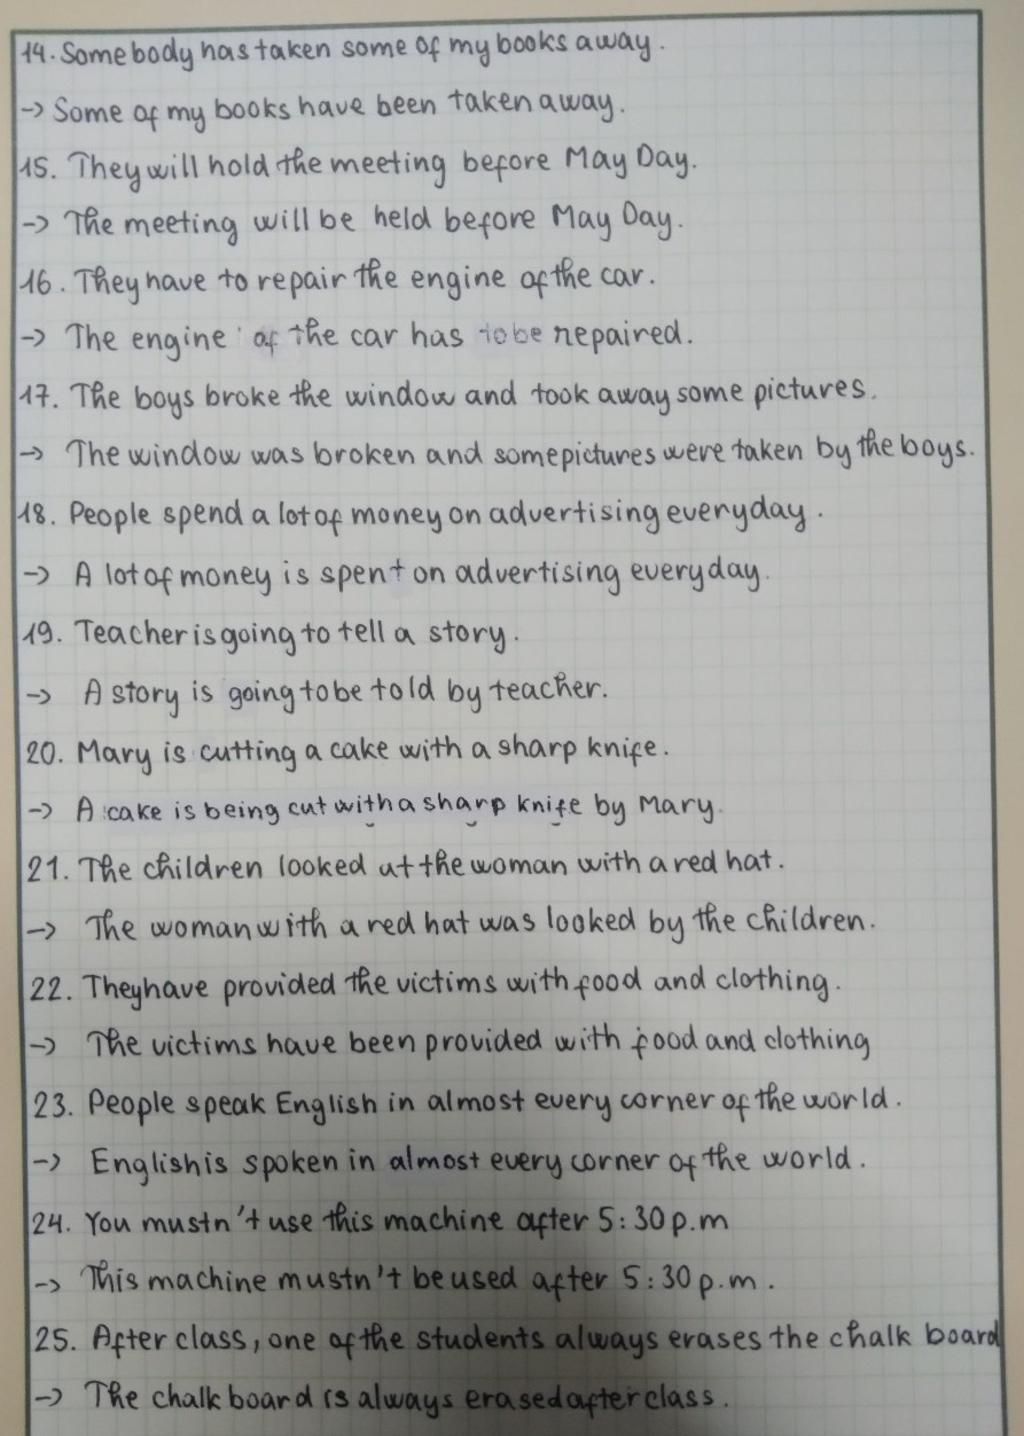 14. Somebody has taken some of my books away.
-> Some of my books have been taken away.
15. They will hold the meeting before May Day.
-> The meeting will be held before May Day.
16. They have to repair the engine of the car.
-> The engine of the car has to be repaired.
17. The boys broke the window and took away some pictures.
-> The window was broken and some pictures were taken by the boys.
18. People spend a lot of money on advertising everyday.
-> A lot of money is spent on advertising everyday.
19. Teacher is going to tell a story.
-> A story is going to be told by teacher.
20. Mary is cutting a cake with a sharp knife.
-> A cake is being cut with a sharp knife by Mary.
21. The children looked at the woman with a red hat.
-> The woman with a red hat was looked by the children.
22. They have provided the victims with food and clothing.
-> The victims have been provided with food and clothing
23. People speak English in almost every corner of the world.
-> English is spoken in almost every corner of the world.
24. You mustn't use this machine after 5:30 p.m
-> This machine mustn't be used after 5:30 p.m.
25. After class, one of the students always erases the chalk board
-> The chalk board is always erased after class.